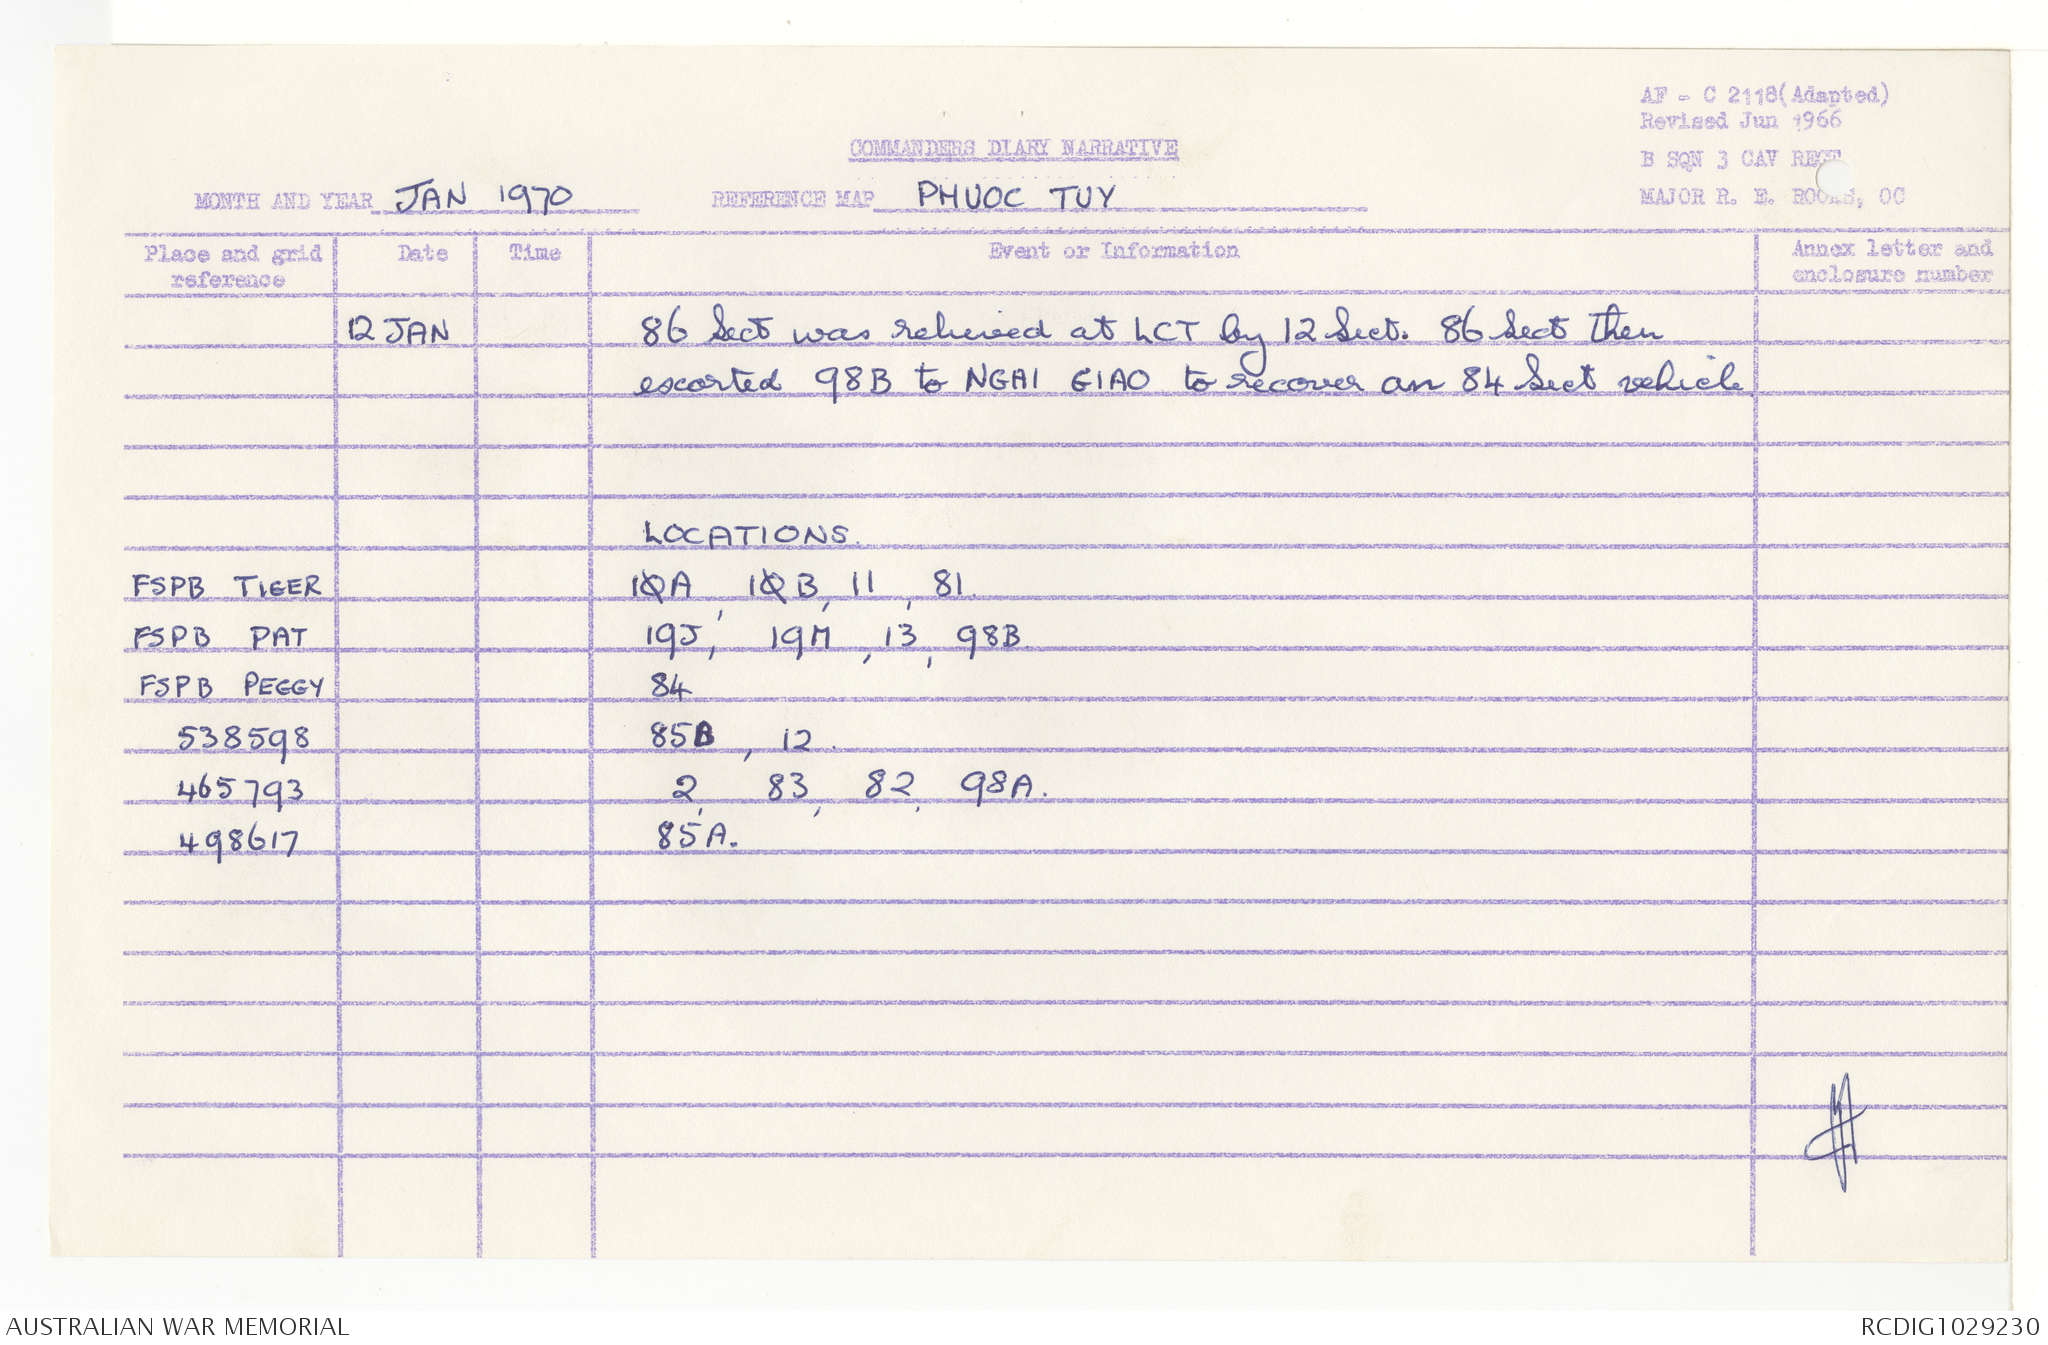 AF - C 2118(Adapted)
Revised Jun 1966
B SQN 3 CAV REGT
MAJOR R. E. ROOKS, OC
COMMANDERS DIARY NARRATIVE
MONTH AND YEAR JAN 1970 REFERENCE MAP PHUOC TUY
Place and grid reference Date Time Event or Information Annex letter and enclosure number
12 JAN 86 Sect was relieved at LCT by 12 Sect. 86 Sect then
escorted 98B to NGAI GIAO to recover an 84 Sect vehicle
LOCATIONS.
FSPB TIGER 10A, 10B, 11, 81.
FSPB PAT 19J, 19M, 13, 98B.
FSPB PEGGY 84
538598 85B, 12.
465793 2, 83, 82, 98A.
498617 85A.
AUSTRALIAN WAR MEMORIAL RCDIG1029230